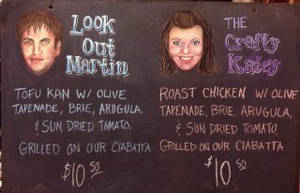 Look
Out
Martin
TOFU KAN W/ OLIVE
TAPENADE, BRIE, ARUGULA,
& SUN DRIED TOMATO.
GRILLED ON OUR CIABATTA
$10.50
THE
Crafty
Katey
ROAST CHICKEN W/ OLIVE
TAPENADE, BRIE, ARUGULA,
& SUN DRIED TOMATO.
GRILLED ON OUR CIABATTA
$10.50